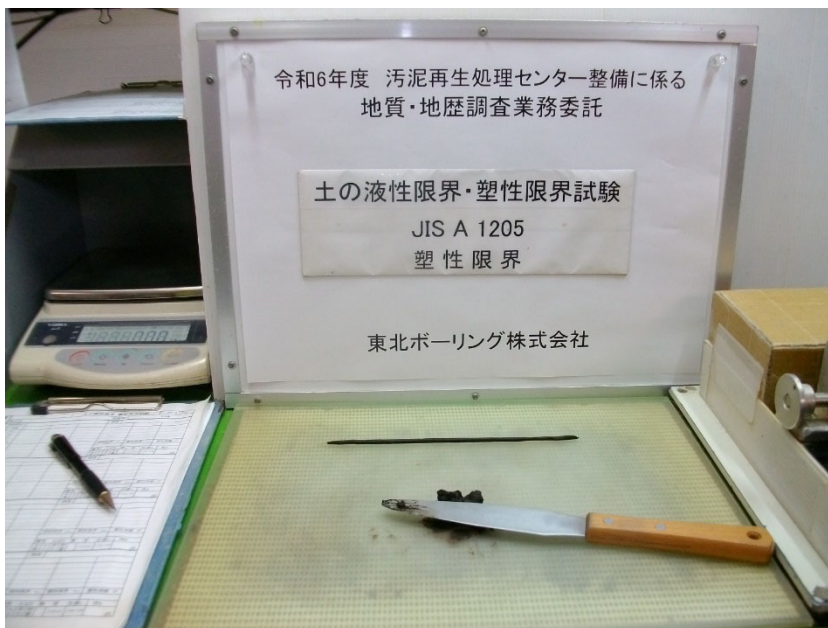 令和6年度 汚泥再生処理センター整備に係る
地質・地歴調査業務委託
土の液性限界・塑性限界試験
JIS A 1205
塑性限界
東北ボーリング株式会社